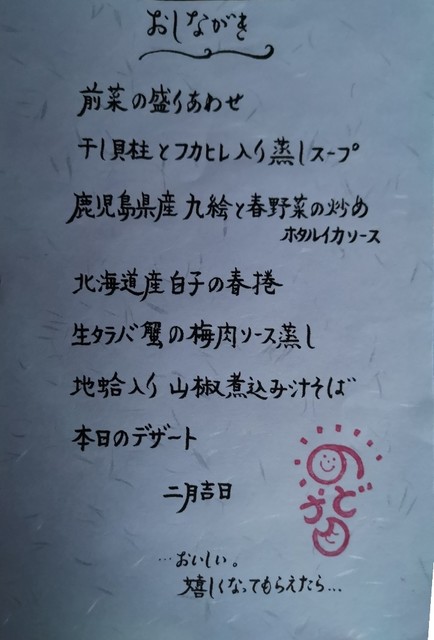 おしながき
前菜の盛りあわせ
干し貝柱とフカヒレ入り蒸しスープ
鹿児島県産 九絵と春野菜の炒め
ホタルイカソース
北海道産白子の春捲
生タラバ蟹の梅肉ソース蒸し
地蛤入り 山椒煮込み汁そば
本日のデザート
二月吉日
…おいしい。
嬉しくなってもらえたら…